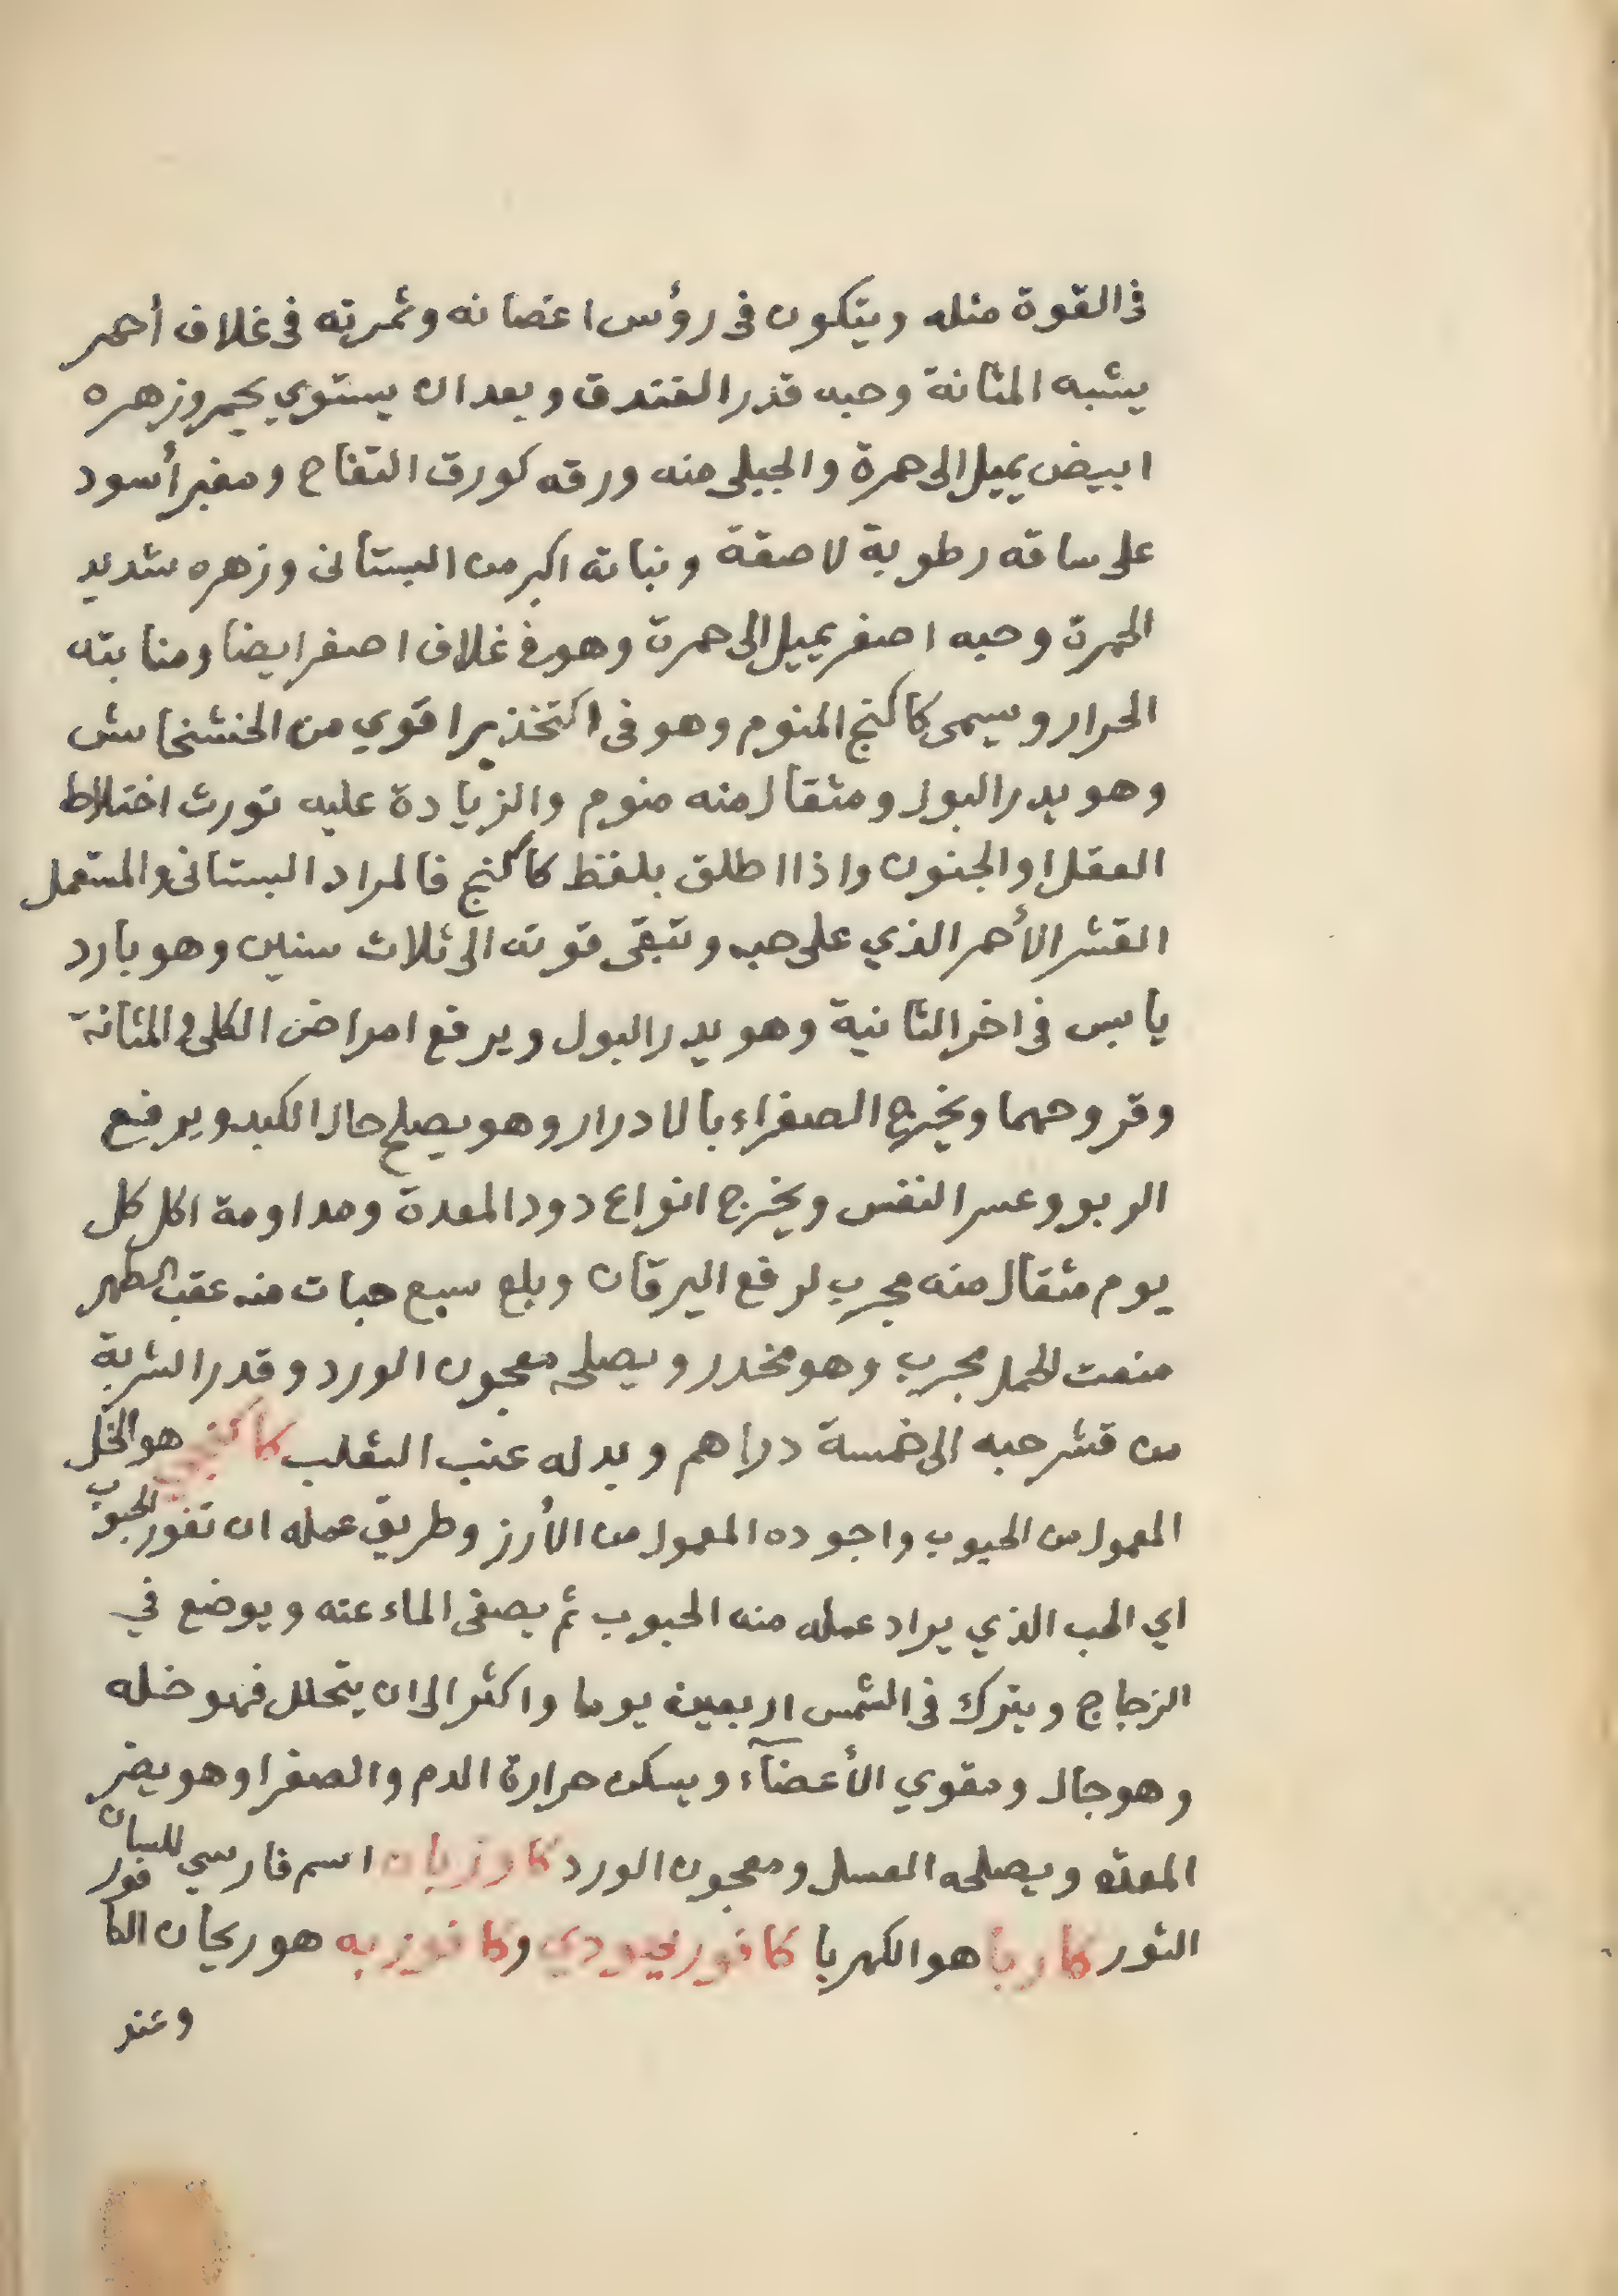 في القوة مثله ويتكون في رؤس اغصانه وثمرته في غلاف أحمر
يشبه المثانة وحبه قدر الفندق وبعد ان يستوي يحمر وزهره
ابيض يميل الى حمرة والجبلى منه ورقه كورق التفاح ومغبر أسود
على ساقه رطوبة لاصقة ونباته اكبر من البستانى وزهره شديد
الحمرة وحبه اصفر يميل الى حمرة وهو في غلاف اصفر ايضا ومنابته
الحرار ويسمى كاكنج المنوم وهو في التخذير اقوي من الخشخاش
وهو يدر البول ومثقال منه منوم والزيادة عليه تورث اختلاط
العقل او الجنون واذا اطلق بلفظ كاكنج فالمراد البستانى والمستعمل
القشر الأحمر الذي على حبه وتبقى قوته الى ثلاث سنين وهو بارد
يابس في اخر الثانية وهو يدر البول ويرفع امراض الكلى والمثانة
وقروحهما ويخرج الصفراء بالادرار وهو يصلح حال الكبد ويرفع
الربو وعسر النفس ويخرج انواع دود المعدة ومداومة اكل كل
يوم مثقال منه مجرب لرفع اليرقان وبلع سبع حبات منه عقب الطهر
منعت الحمل مجرب وهو مخدر ويصلحه معجون الورد وقدر الشربة
من قشر حبه الى خمسة دراهم وبدله عنب الثعلب هو الخل
المعمول من الحبوب واجوده المعمول من الأرز وطريق عمله ان تفور الحبوب
اي الحب الذي يراد عمله منه الحبوب ثم يصفى الماء عنه ويوضع في
الزجاج ويترك في الشمس اربعين يوما واكثر الى ان يتحلل فهو خله
وهو جال ومقوي الأعضآء ويسكن حرارة الدم والصفرا وهو يضر
المعدة ويصلحه العسل ومعجون الورد كاوزبان اسم فارسي للسان
الثور كاربا هو الكهربا كافور يهودي وكافوريه هو ريحان الكافور
وعند